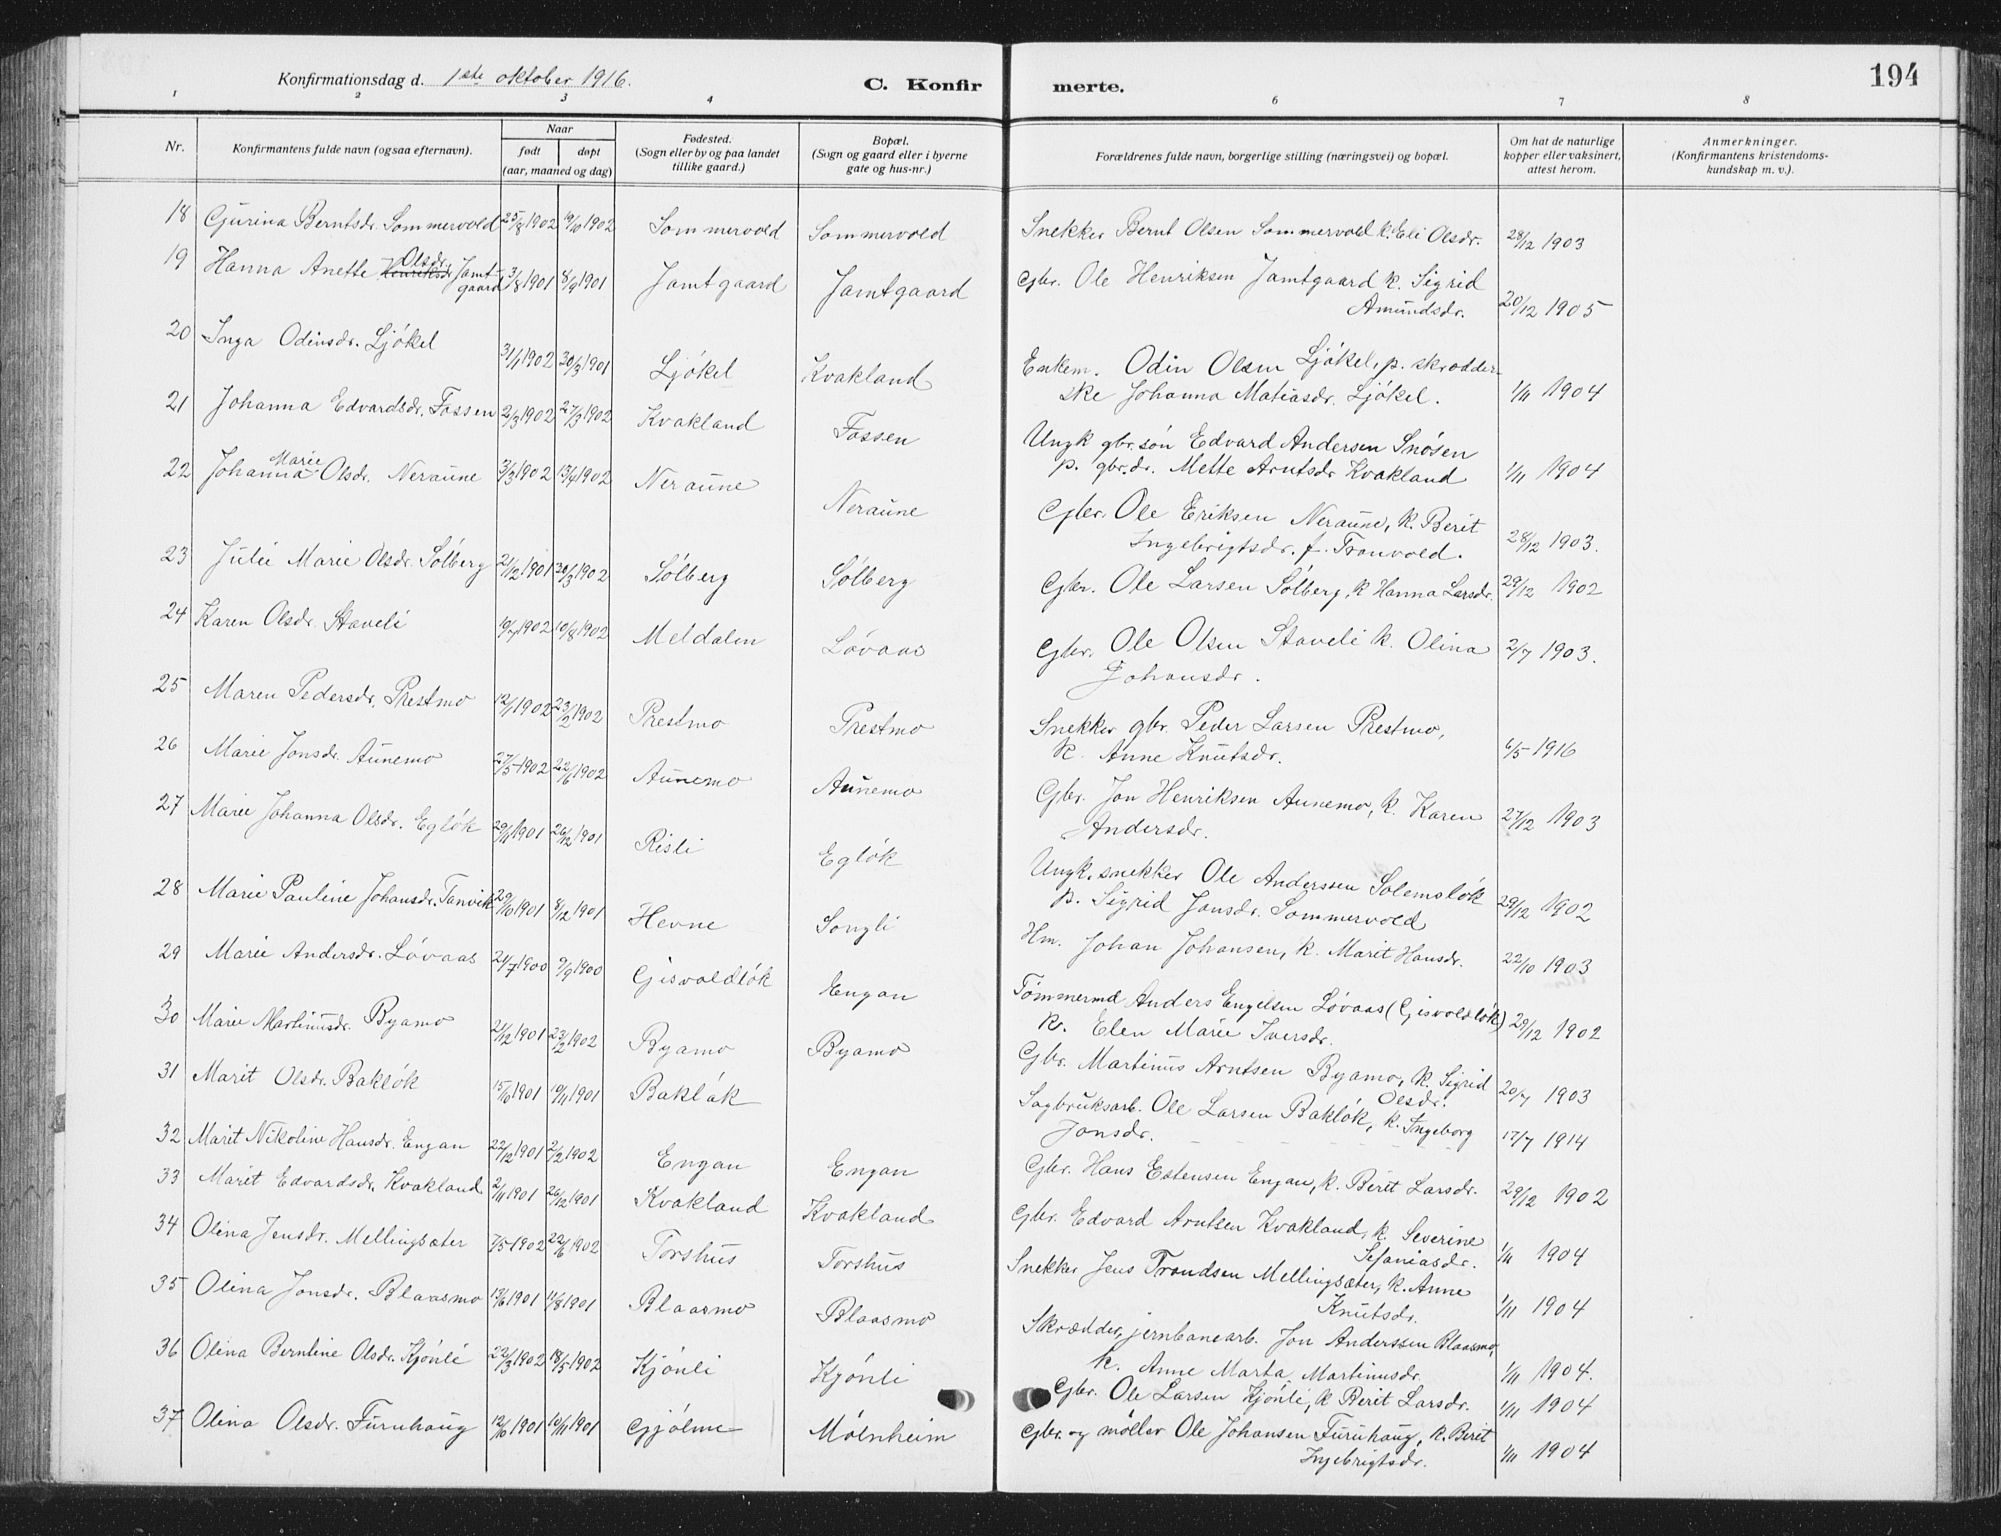 Konfirmationsdag d. 1ste oktober 1916. C. Konfirmerte. 194
1 2 3 4 6 7 8
Nr. Konfirmantens fulde navn (ogsaa efternavn). Naar født døpt (aar, maaned og dag) Fødested. (Sogn eller by og paa landet tillike gaard.) Bopæl. (Sogn og gaard eller i byerne gate og hus-nr.) Forældrenes fulde navn, borgerlige stilling (næringsvei) og bopæl. Om hat de naturlige kopper eller vaksinert, attest herom. Anmerkninger. (Konfirmantens kristendomskundskap m. v.).
18 Gjurina Berntsdr. Sommervold 25/8 1902 19/10 1902 Sommervold Sommervold Snekker Bernt Olsen Sommervold k. Eli Olsdr. 28/12 1903
19 Hanna Anette Henriksdr. Olsdr. Jamtgaard 3/8 1901 8/9 1901 Jamtgaard Jamtgaard Gbr. Ole Henriksen Jamtgaard k. Sigrid
Amundsdr. 20/12 1905
20 Inga Odinsdr. Ljökel 31/1 1902 30/3 1901 Ljökel Kvakland Enkem. Odin Olsen Ljökel, p. skrødder-
ske Johanna Matiasdr. Ljökel. 1/11 1904
21 Johanna Edvardsdr. Fossen 2/3 1902 27/3 1902 Kvakland Fossen Ungk gbr.søn Edvard Andersen Snösen
p. gbr.dr. Mette Arntsdr Kvakland 1/11 1904
22 Johanna Marie Olsdr. Neraune 3/3 1902 13/4 1902 Neraune Neraune Gbr. Ole Eriksen Neraune, k. Berit
Ingebrigtsdr. f. Tronvold. 28/12 1903.
23 Julie Marie Olsdr. Sölberg 21/12 1901 30/3 1902 Sölberg Sölberg Gbr. Ole Larsen Sölberg, k Hanna Larsdr. 29/12 1902
24 Karen Olsdr. Staveli 10/7 1902 10/8 1902 Meldalen Lövaas Gbr. Ole Olsen Staveli k. Olina
Johansdr. 2/7 1903.
25 Maren Pedersdr. Prestmo 12/1 1902 23/2 1902 Prestmo Prestmo Snekker gbr. Peder Larsen Prestmo,
k. Anne Knutsdr. 6/5 1916
26 Marie Jonsdr. Aunemo 27/5 1902 22/6 1902 Aunemo Aunemo Gbr. Jon Henriksen Aunemo, k. Karen
Andersdr. 27/12 1903
27 Marie Johanna Olsdr. Eglök 29/11 1901 26/12 1901 Risli Eglök Ungk. snekker Ole Anderssen Solemslök
p. Sigrid Jonsdr. Sommervold 29/12 1902
28 Marie Pauline Johansdr. Tanvik 29/10 1901 8/12 1901 Hevne Songli Hm. Johan Johansen, k. Marit Hansdr. 22/10 1903
29 Marie Andersdr. Lövaas 21/7 1900 9/9 1900 Gisvoldlök Engan Tömmermd Anders Engelsen Lövaas (Gisvoldlök)
k. Elen Marie Iversdr. 29/12 1902
30 Marie Martinusdr. Byamo 21/12 1901 23/2 1902 Byamo Byamo Gbr. Martinus Arntsen Byamo, k. Sigrid
Olsdr. 20/7 1903
31 Marit Olsdr. Baklök 15/10 1901 10/11 1901 Baklök Sagbruksarb. Ole Larsen Baklök, k. Ingeborg
Jonsdr. 17/7 1914
32 Marit Nikoline Hansdr. Engan 22/12 1901 2/2 1902 Engan Engan Gbr. Hans Estensen Engan, k. Berit Larsdr. 29/12 1902
33 Marit Edvardsdr. Kvakland 2/11 1901 26/12 1901 Kvakland Kvakland Gbr. Edvard Arntsen Kvakland, k. Severine
Sefaniasdr. 1/11 1904
34 Olina Jensdr. Mellingsæter 7/5 1902 22/6 1902 Torshus Torshus Snekker Jens Trondsen Mellingsæter, k. Anne
Knutsdr. 1/11 1904
35 Olina Jonsdr. Blaasmo 13/6 1901 11/8 1901 Blaasmo Blaasmo Skrædder, jernbanearb. Jon Anderssen Blaasmo,
k. Anne Marta Martinusdr. 1/11 1904.
36 Olina Berntine Olsdr. Kjönli 22/3 1902 18/5 1902 Kjönli Kjönli Gbr. Ole Larsen Kjönli, k Berit Larsdr. 1/11 1904
37 Olina Olsdr. Furuhaug 12/10 1901 10/11 1901 Gjölme Mölnheim Gbr. og möller Ole Johansen Furuhaug, k. Berit
Ingebrigtsdr. 1/11 1904